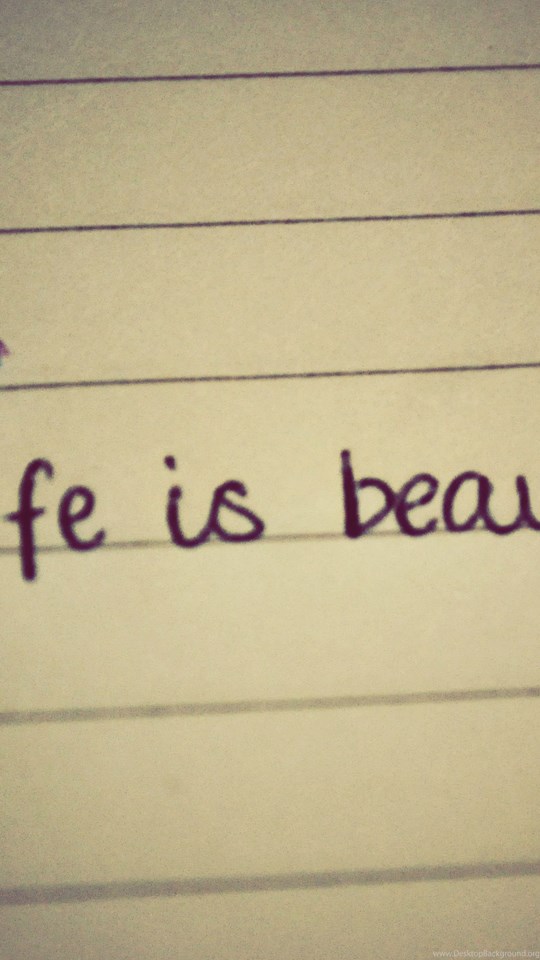 fe is beau
www.DesktopBackground.org